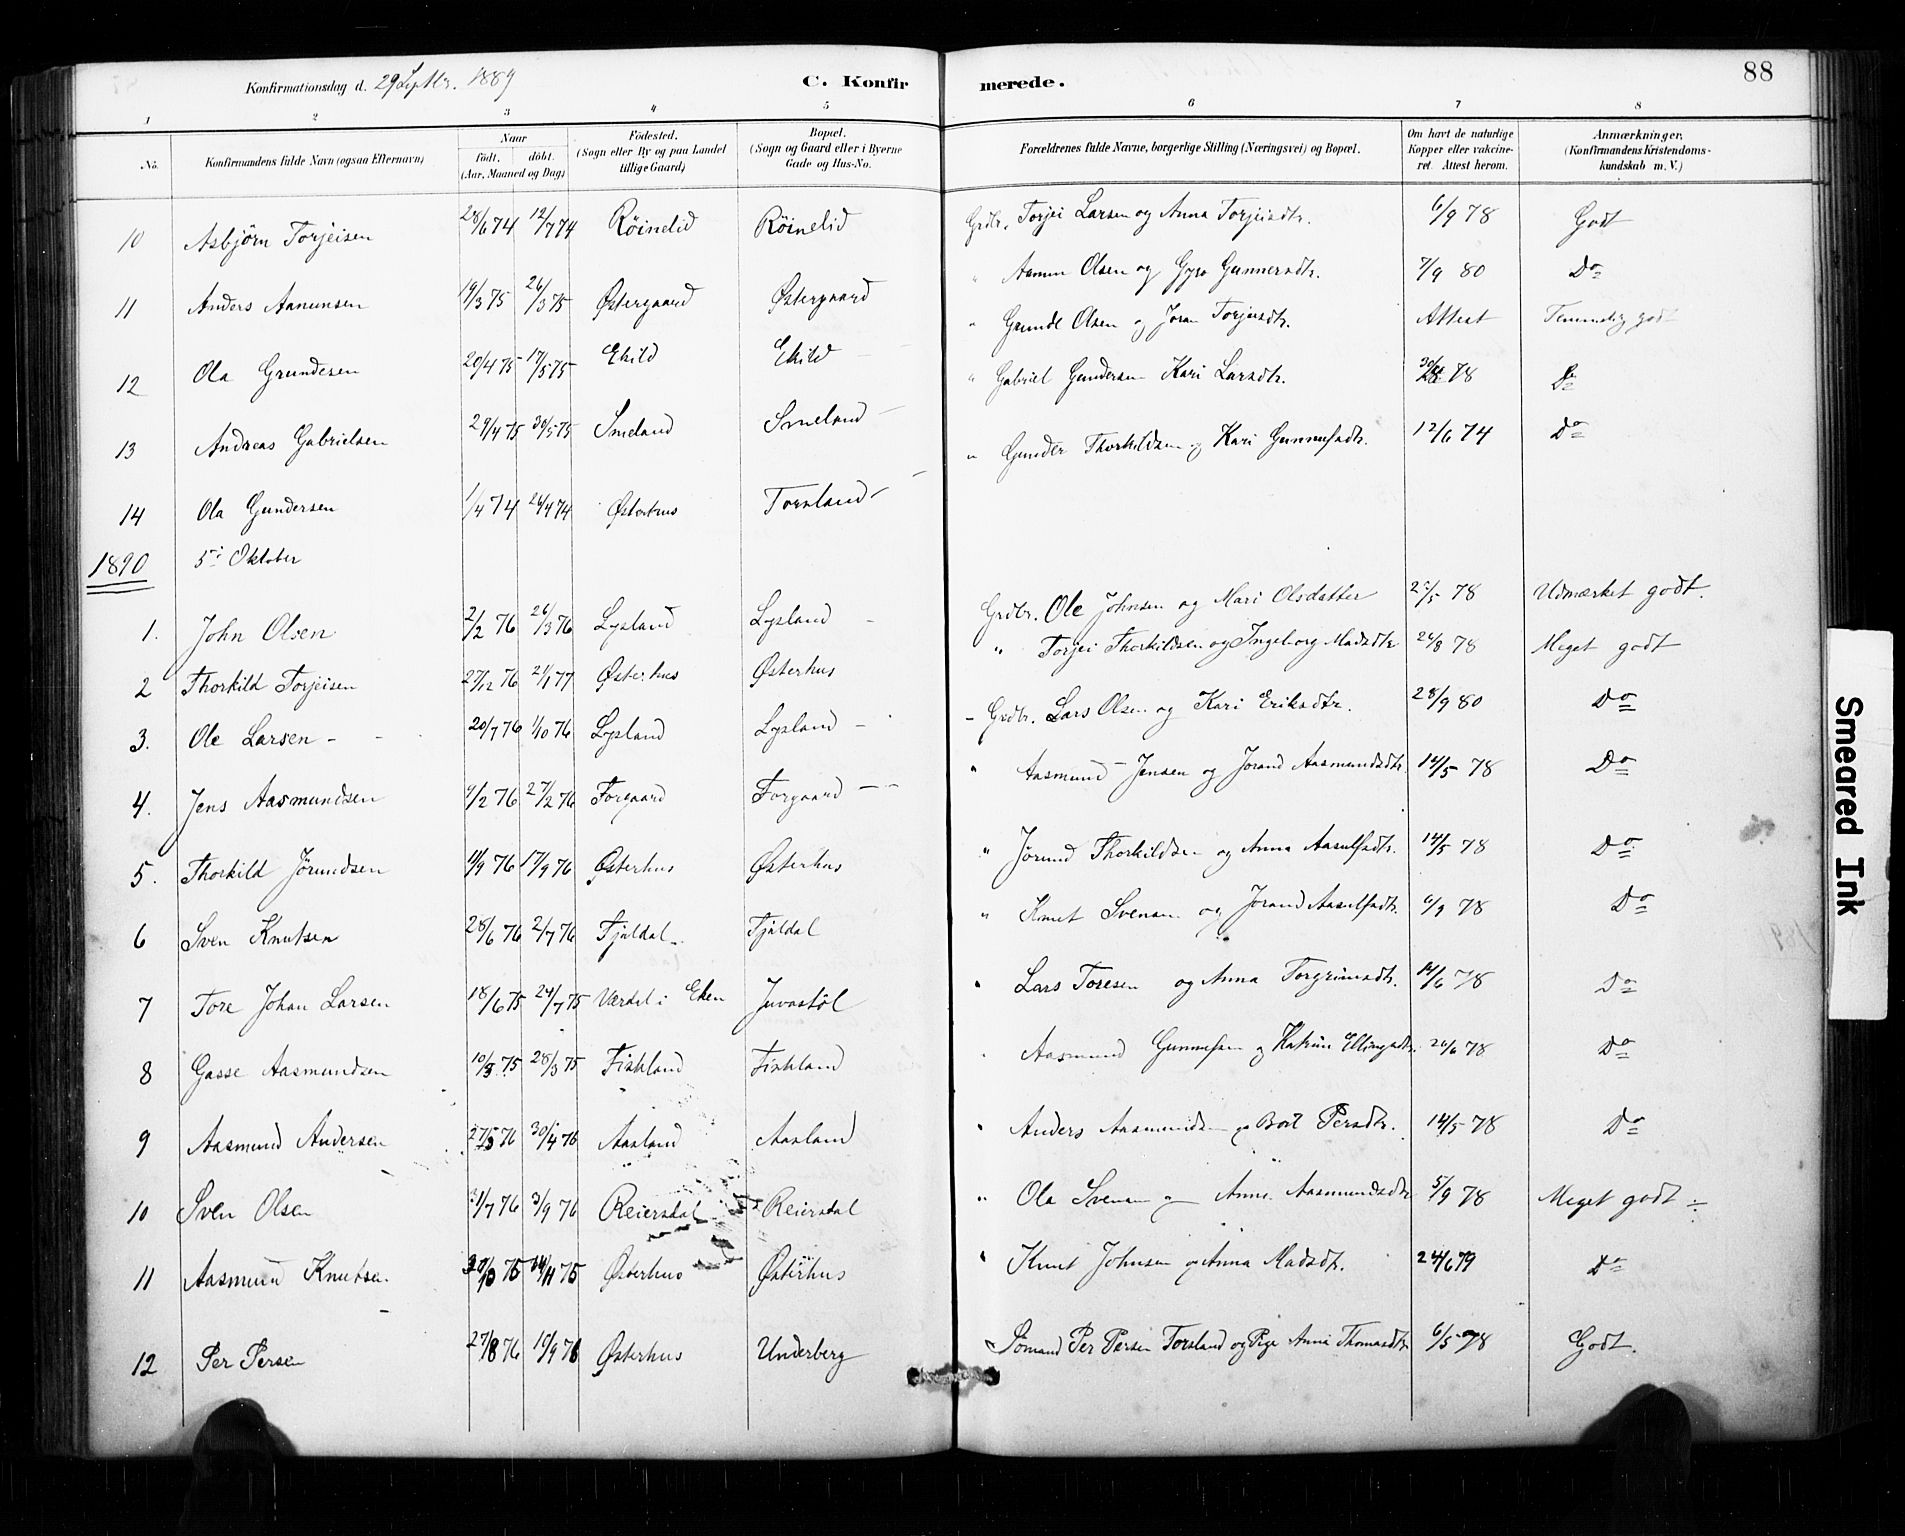 88
Konfirmationsdag d. 29 Septbr. 1889
C. Konfirmerede.
1 2 3 4 5 6 7 8
No. Konfirmandens fulde Navn (ogsaa Efternavn) Naar født, døbt. (Aar, Maaned og Dag) Fødested. (Sogn eller By og paa Landet tillige Gaard) Bopæl. (Sogn og Gaard eller i Byerne Gade og Hus-No. Forældrenes fulde Navne, borgerlige Stilling (Næringsvei) og Bopæl. Om havt de naturlige Kopper eller vakcineret. Attest herom. Anmærkninger. (Konfirmandens Kristendomskundskab m. V.)
10 Asbjörn Torjeisen 28/6 74 12/7 74 Röinelid Röinelid Grdbr. Torjei Larsen og Anna Torjeisdtr. 6/9 78 Godt
11 Anders Aanunsen 19/3 75 26/3 75 Østergaard Østergaard " Aanun Olsen og Gyro Gunnersdtr. 7/9 80 Do
12 Ola Grundesen 20/4 75 17/5 75 Ekild Ekild " Grunde Olsen og Joran Torjeisdtr. Attest Temmelig godt
13 Andreas Gabrielsen 29/4 75 30/5 75 Smeland Smeland " Gabriel Gundersen Kari Larsdtr. 78 Do
14 Ola Gundersen 1/4 74 26/4 74 Østerhus Torsland " Gunder Thorkildsen og Kari Gunnufsdtr. 12/6 74 Do
1890 5i Oktober
1. John Olsen 2/2 76 26/3 76 Lysland Lysland Grdbr. Ole Johnsen og Mari Olsdatter 25/5 78 Udmærket godt.
2 Thorkild Torjeisen 27/12 76 21/1 77 Østerhus Østerhus " Torjei Thorkildsen og Ingeborg Madsdtr 26/8 78 Meget godt
3. Ole Larsen 20/7 76 1/10 76 Lysland Lysland Grdbr. Lars Olsen og Kari Eriksdtr. 28/9 80 Do
4. Jens Aasmundsen 4/2 76 27/2 76 Forgaard Forgaard " Aasmund Jensen og Jorand Aasmundsdtr. 14/5 78 Do
5. Thorkild Jörundsen 11/9 76 17/9 76 Østerhus Østerhus " Jörund Thorkildsen og Anna Aasulfsdtr. 14/5 78 Do
6 Sven Knutsen 28/6 76 2/7 76 Fjäldal Fjäldal " Knut Svensen og Jorand Aasulfsdtr. 6/9 78 Do
7 Tore Johan Larsen 18/6 75 24/7 75 Værdal i Eken Juvastöl " Lars Toresen og Anna Torgrimsdtr. 14/6 78 Do
8 Gasse Aasmundsen 10/3 75 28/3 75 Fiskland Fiskland Aasmund Gunnufsen og Katrine Ellingsdtr. 26/6 78 Do
9 Aasmund Andersen 27/3 76 30/4 76 Aasland Aasland " Anders Aasmunds og Berit Persdtr. 14/5 78 Do
10 Sven Olsen 31/7 76 3/9 76 Reiersdal Reiersdal " Ola Svensen og Anne Aasmundsdtr 5/9 78 Meget godt
11 Aasmund Knutsen 75 14/11 75 Østerhus Østerhus " Knut Johnsen og Anna Madsdtr. 24/6 79 Do
12 Per Persen 27/8 76 10/9 76 Østerhus Underberg Sömand Per Persen Torsland og Pige Anne Thomasdtr 6/5 78 Godt.
Smeared Ink